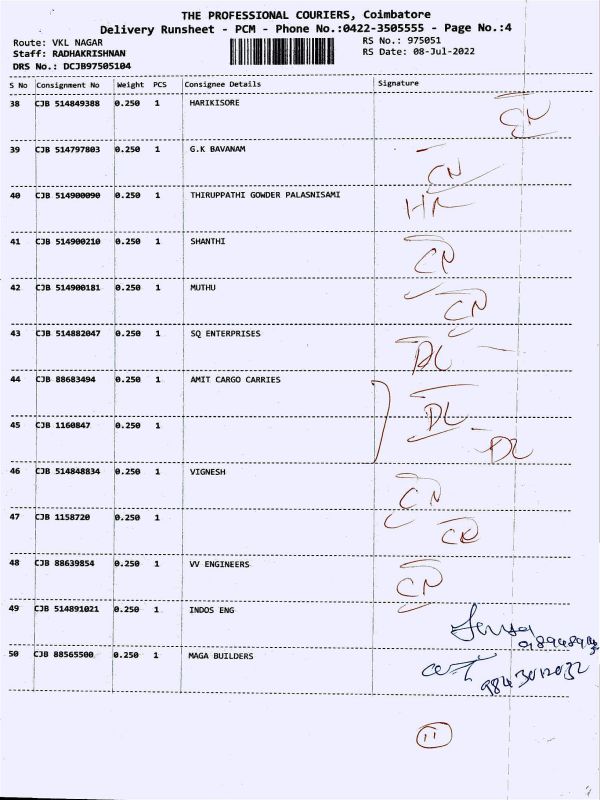 THE PROFESSIONAL COURIERS, Coimbatore
Delivery Runsheet - PCM - Phone No.:0422-3505555 - Page No.:4
Route: VKL NAGAR RS No.: 975051
Staff: RADHAKRISHNAN RS Date: 08-Jul-2022
DRS No.: DCJB97505104
S No Consignment No Weight PCS Consignee Details Signature
38 CJB 514849388 0.250 1 HARIKISORE CN
39 CJB 514797803 0.250 1 G.K BAVANAM CN
40 CJB 514900090 0.250 1 THIRUPPATHI GOWDER PALASNISAMI
41 CJB 514900210 0.250 1 SHANTHI CN
42 CJB 514900181 0.250 1 MUTHU CN
43 CJB 514882047 0.250 1 SQ ENTERPRISES DL
44 CJB 88683494 0.250 1 AMIT CARGO CARRIES DL
45 CJB 1160847 0.250 1 DL
46 CJB 514848834 0.250 1 VIGNESH CN
47 CJB 1158720 0.250 1
48 CJB 88639854 0.250 1 VV ENGINEERS
49 CJB 514891021 0.250 1 INDOS ENG
50 CJB 88565500 0.250 1 MAGA BUILDERS
11